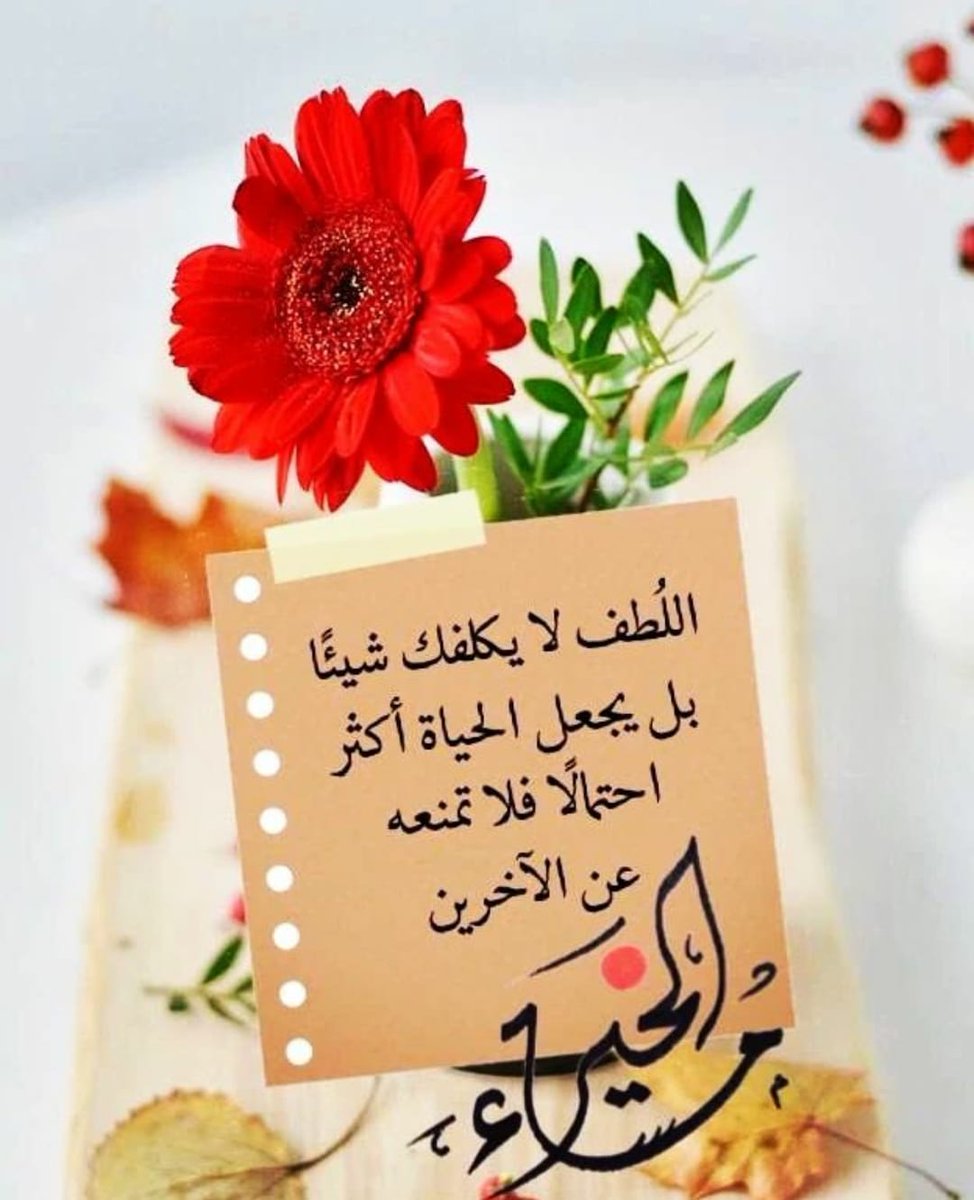 اللُطف لا يكلفك شيئًا
بل يجعل الحياة أكثر
احتمالًا فلا تمنعه
عن الآخرين
مساء الخير